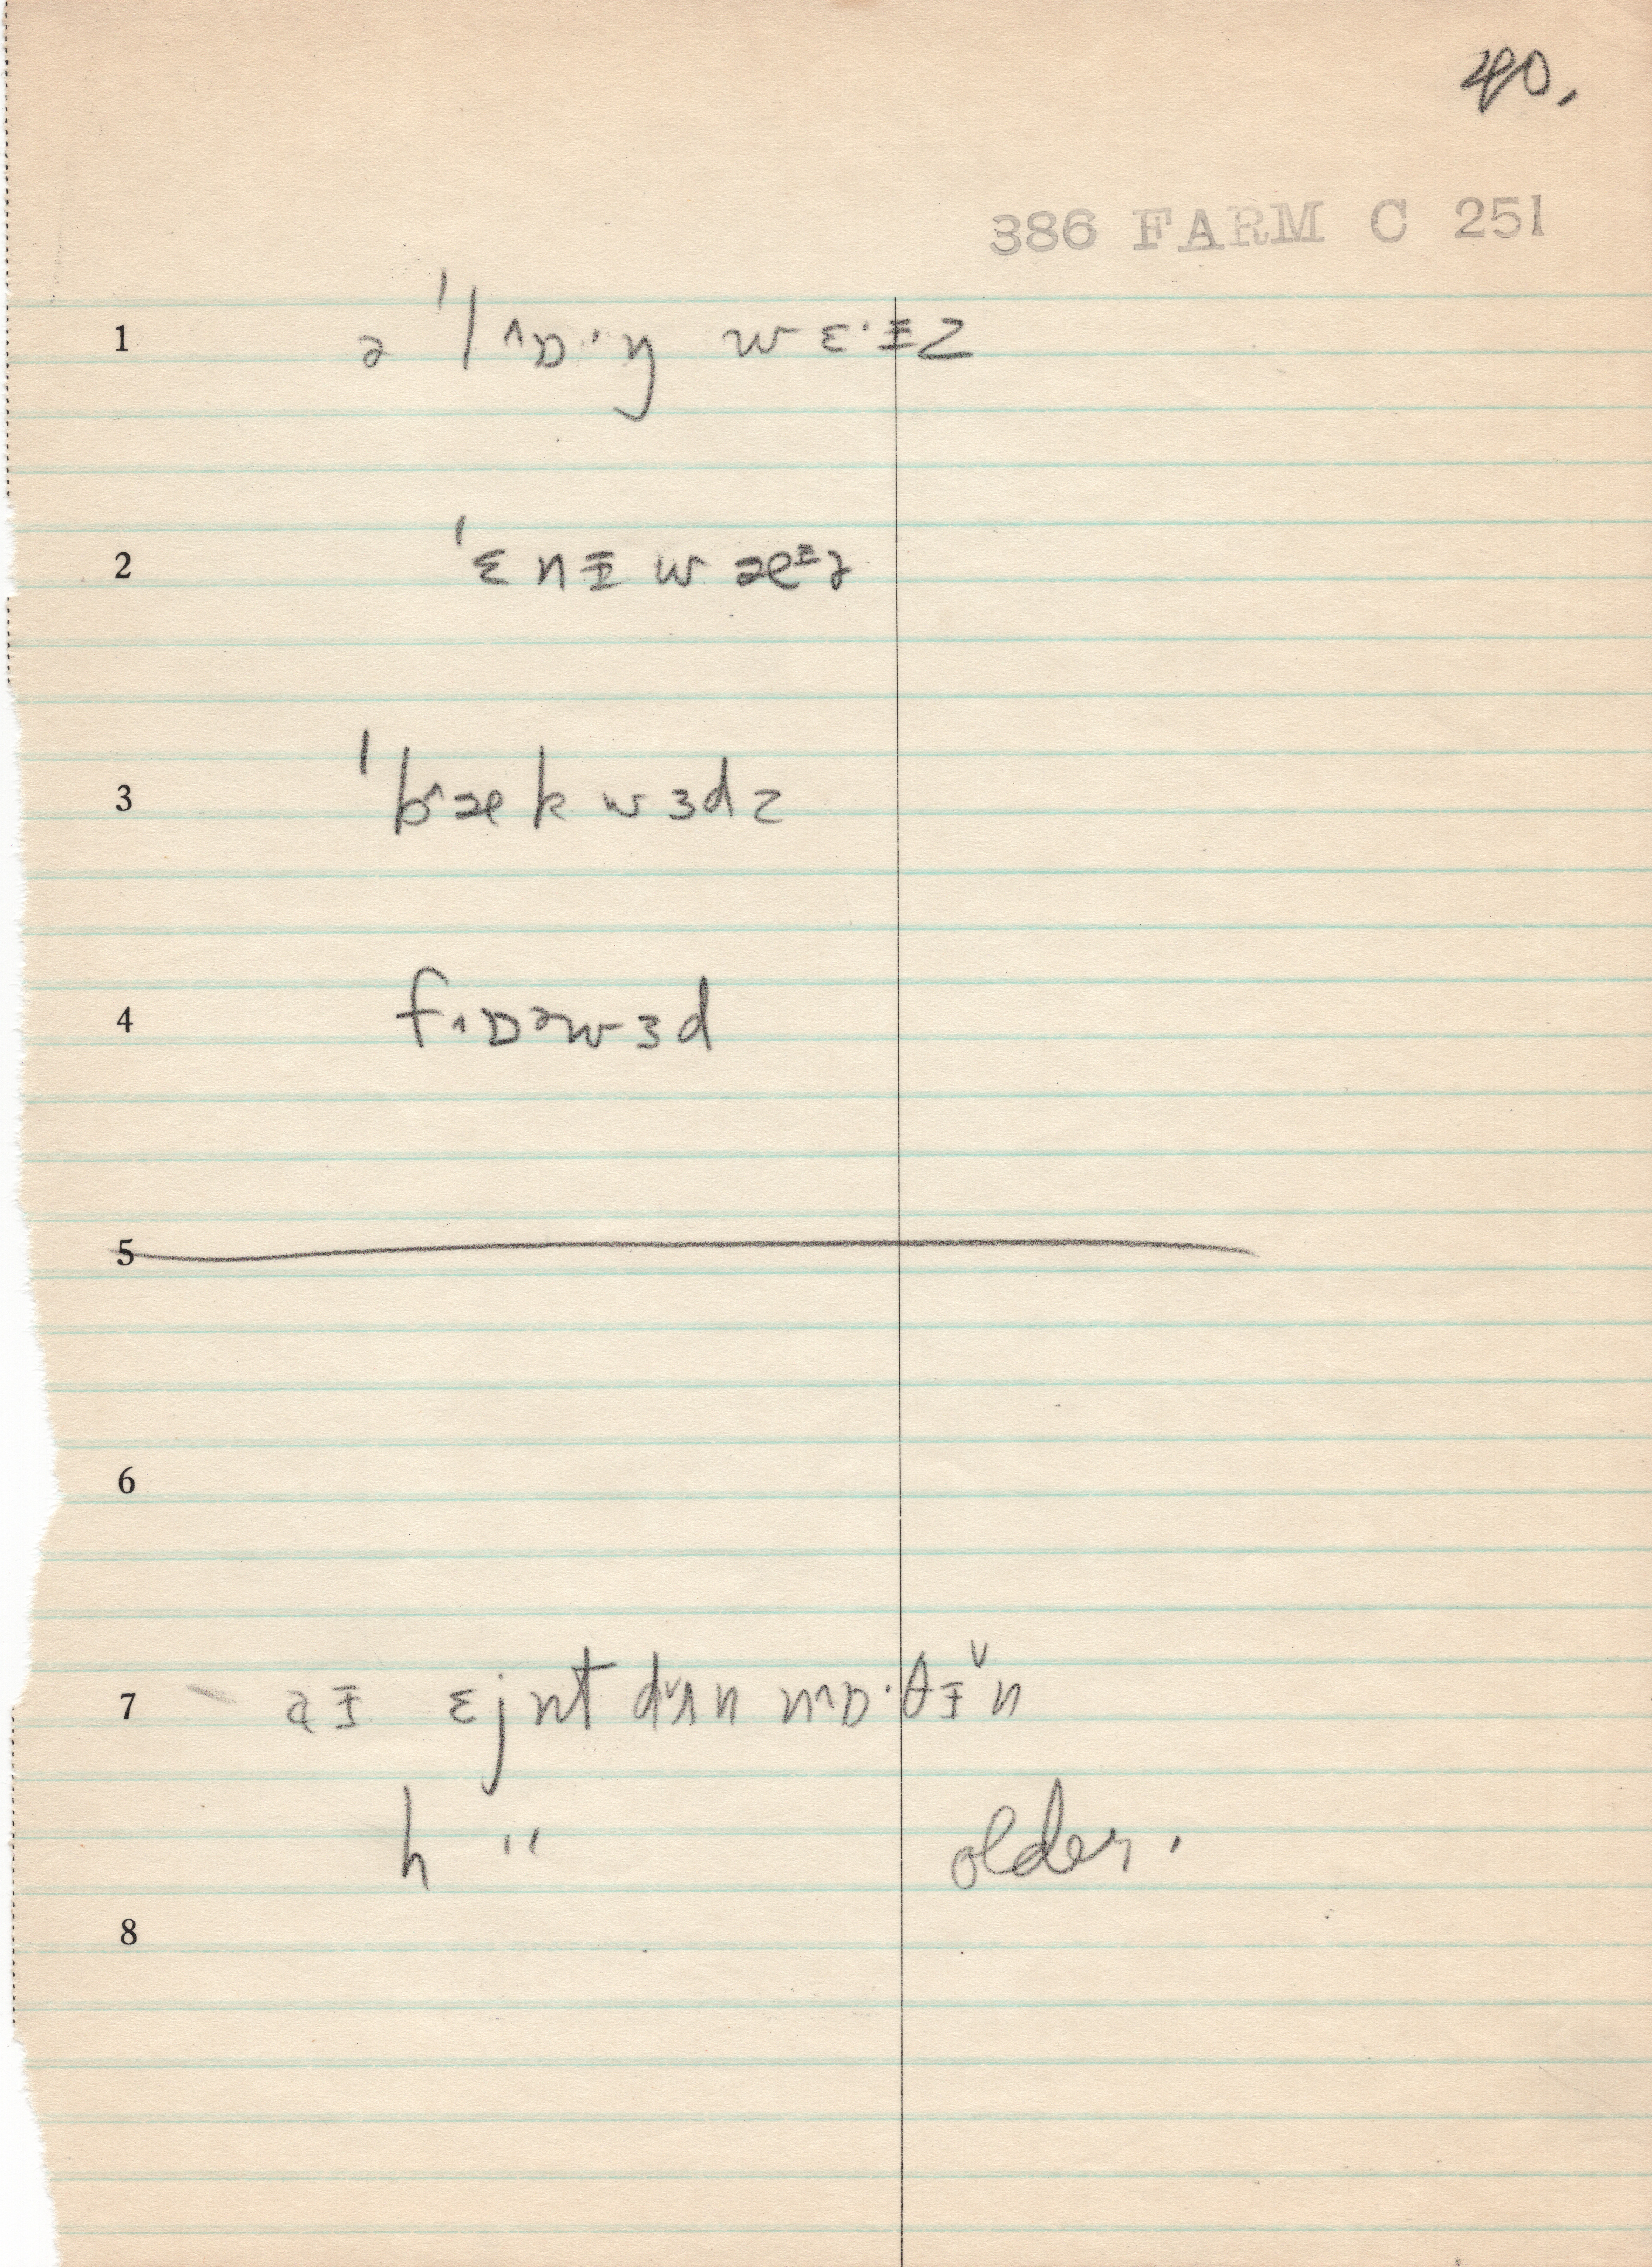 40.
386 FARM C 251
1 ə ˈl^ɒ·ŋ wɛ·ɪz
2 ˈɛnɪwæɪz
3 ˈb^ækwɜdz
4 f^ɒəwɜd
5
6
7 aɪ ɛjnt dˇʌn n^ɒ·θɪˇn
h " older.
8